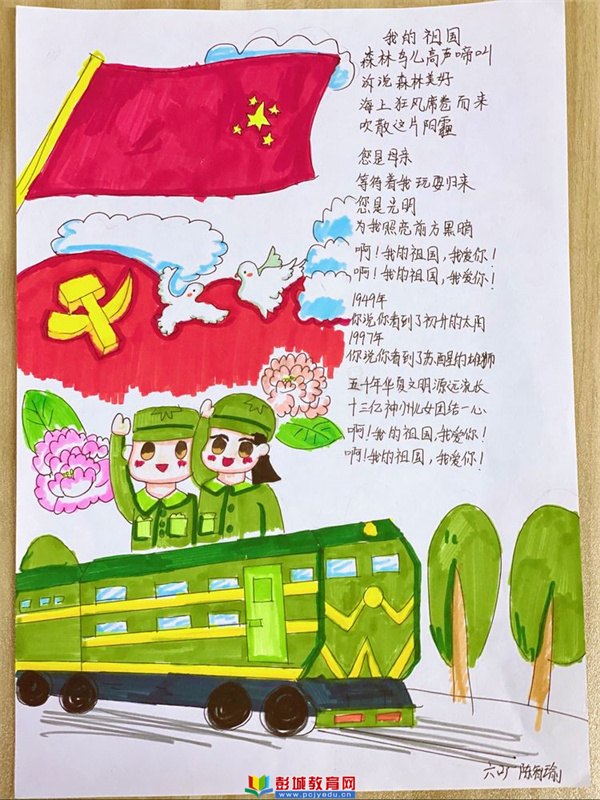 我的祖国
森林鸟儿高声啼叫
诉说森林美好
海上狂风席卷而来
吹散这片阴霾
您是母亲
等待着我玩耍归来
您是光明
为我照亮前方黑暗
啊！我的祖国，我爱你！
啊！我的祖国，我爱你！
1949年
你说你看到了初升的太阳
1997年
你说你看到了苏醒的雄狮
五千年华夏文明源远流长
十三亿神州儿女团结一心
啊！我的祖国，我爱你！
啊！我的祖国，我爱你！
陈
彭城教育网
www.pcjyedu.cn